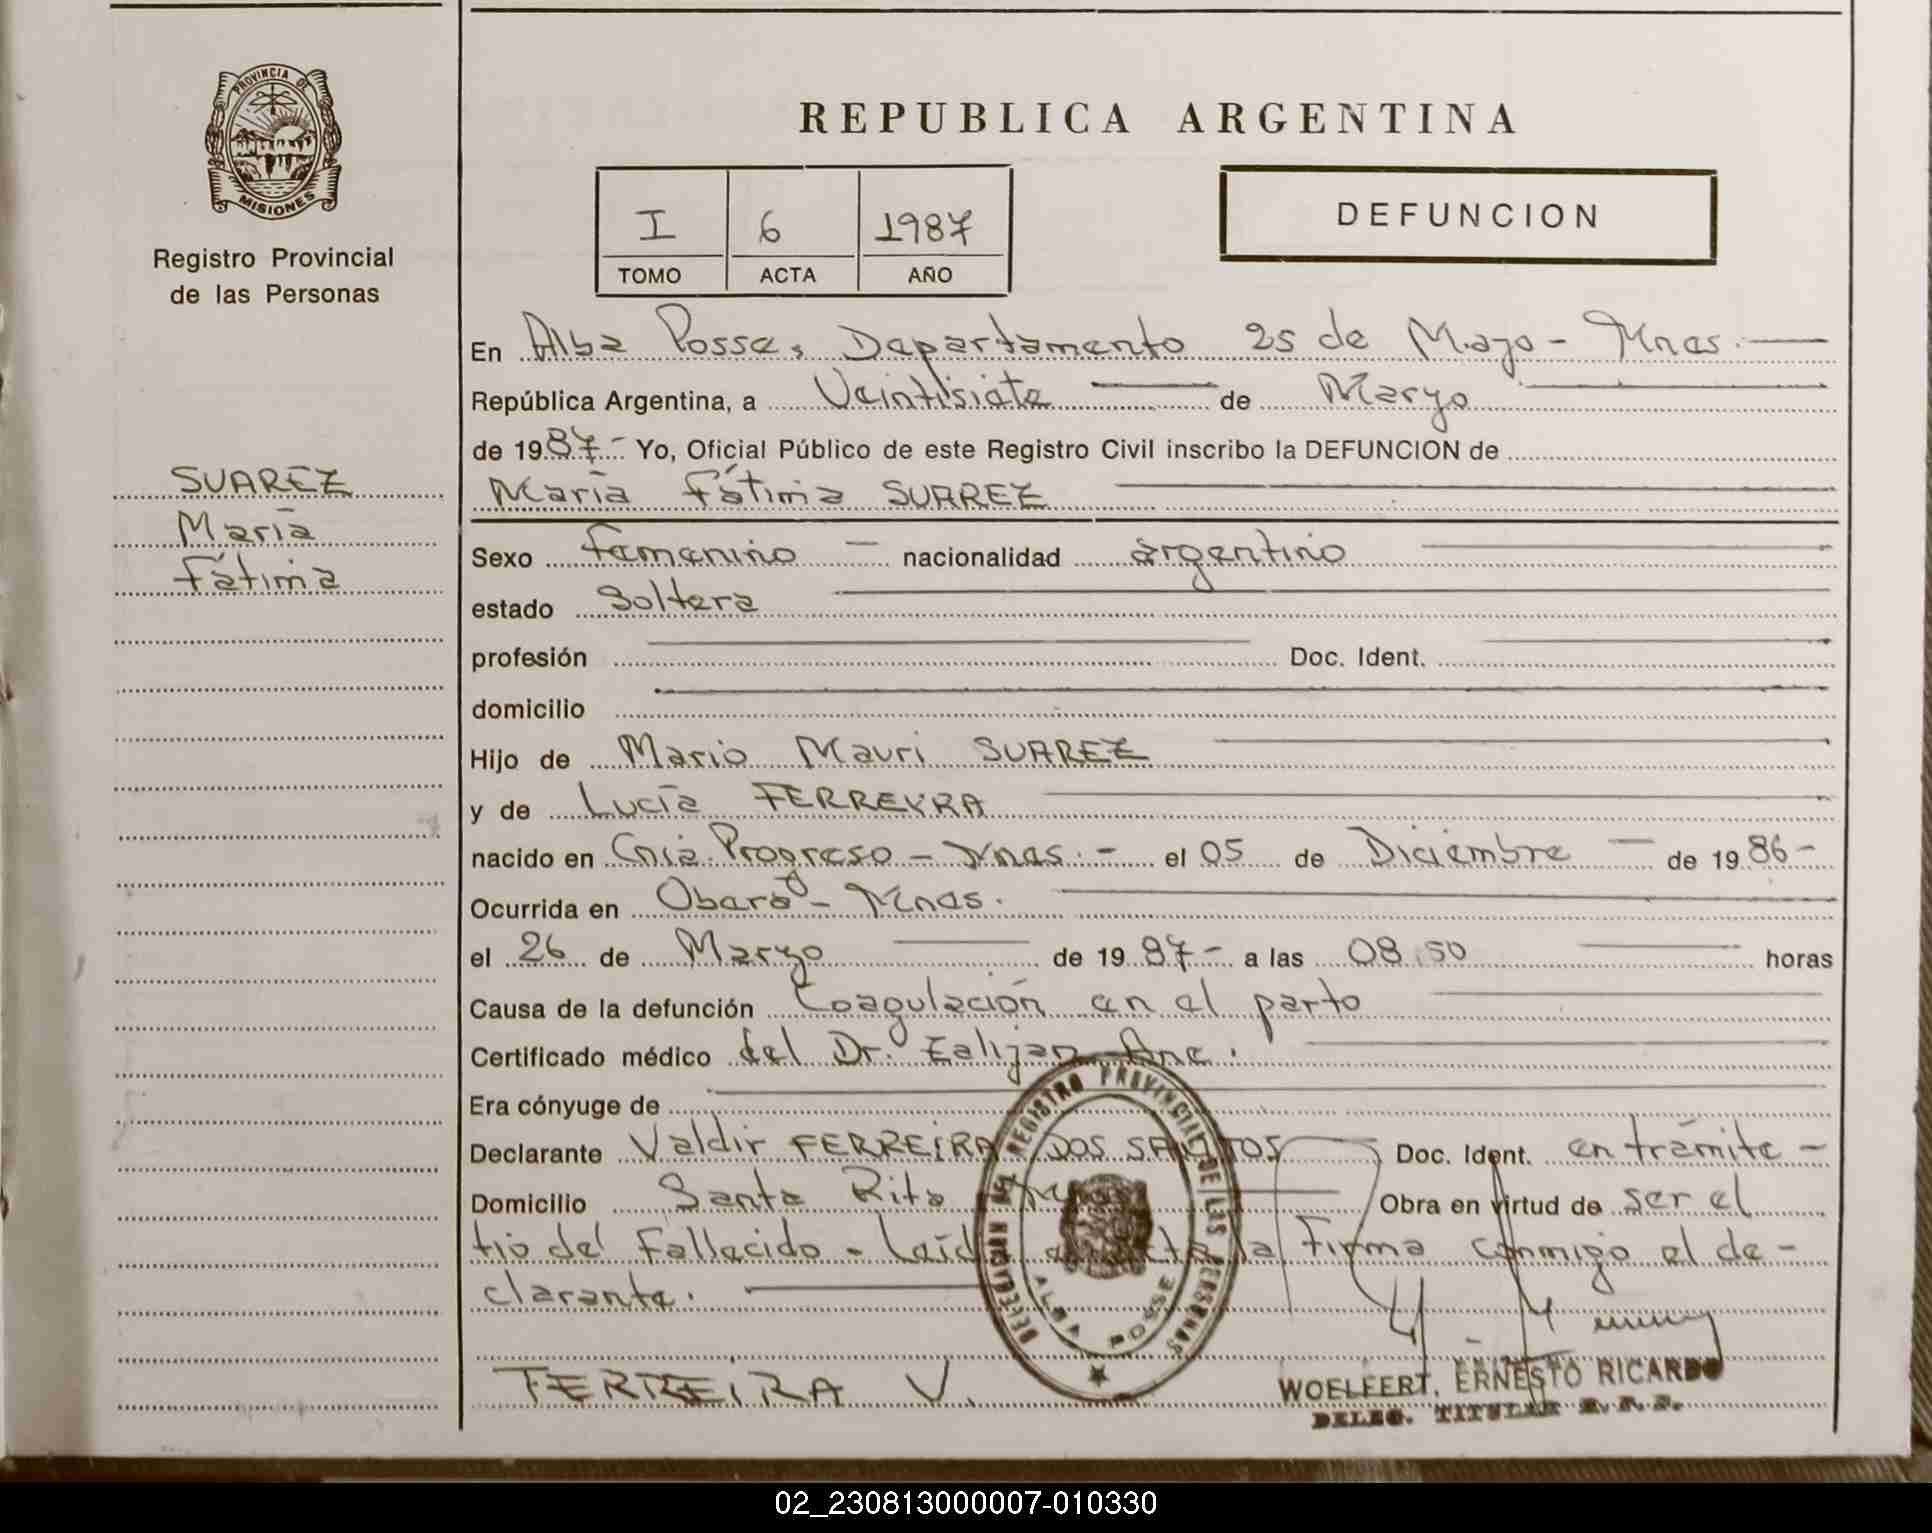 PROVINCIA DE
MISIONES
Registro Provincial
de las Personas
SUAREZ
María
Fátima
REPUBLICA ARGENTINA
I 6 1987
TOMO ACTA AÑO
DEFUNCION
En Alba Posse, Departamento 25 de Mayo - Mnes.
República Argentina, a Veintisiete de Maryo
de 1987- Yo, Oficial Público de este Registro Civil inscribo la DEFUNCION de
María Fátima SUAREZ
Sexo femenino - nacionalidad argentino
estado Soltera
profesión Doc. Ident.
domicilio
Hijo de Mario Mauri SUAREZ
y de Lucía FERREYRA
nacido en Cnia. Progreso - Mnes. - el 05 de Diciembre - de 1986-
Ocurrida en Oberá - Mnes.
el 26 de Maryo de 1987- a las 08,50 horas
Causa de la defunción Coagulación en el parto
Certificado médico del Dr.
Era cónyuge de
Declarante Valdir FERREIRA DOS SANTOS Doc. Ident. en trámite -
Domicilio Santa Rita Obra en virtud de ser el
tio del Fallecido - Leída el acta la Firma conmigo el de-
clarante.
DELEGACION DEL REGISTRO PROVINCIAL DE LAS PERSONAS
ALBA POSSE
FERREIRA V.
WOELFERT, ERNESTO RICARDO
DELEG. TITULAR R.P.P.
02_230813000007-010330